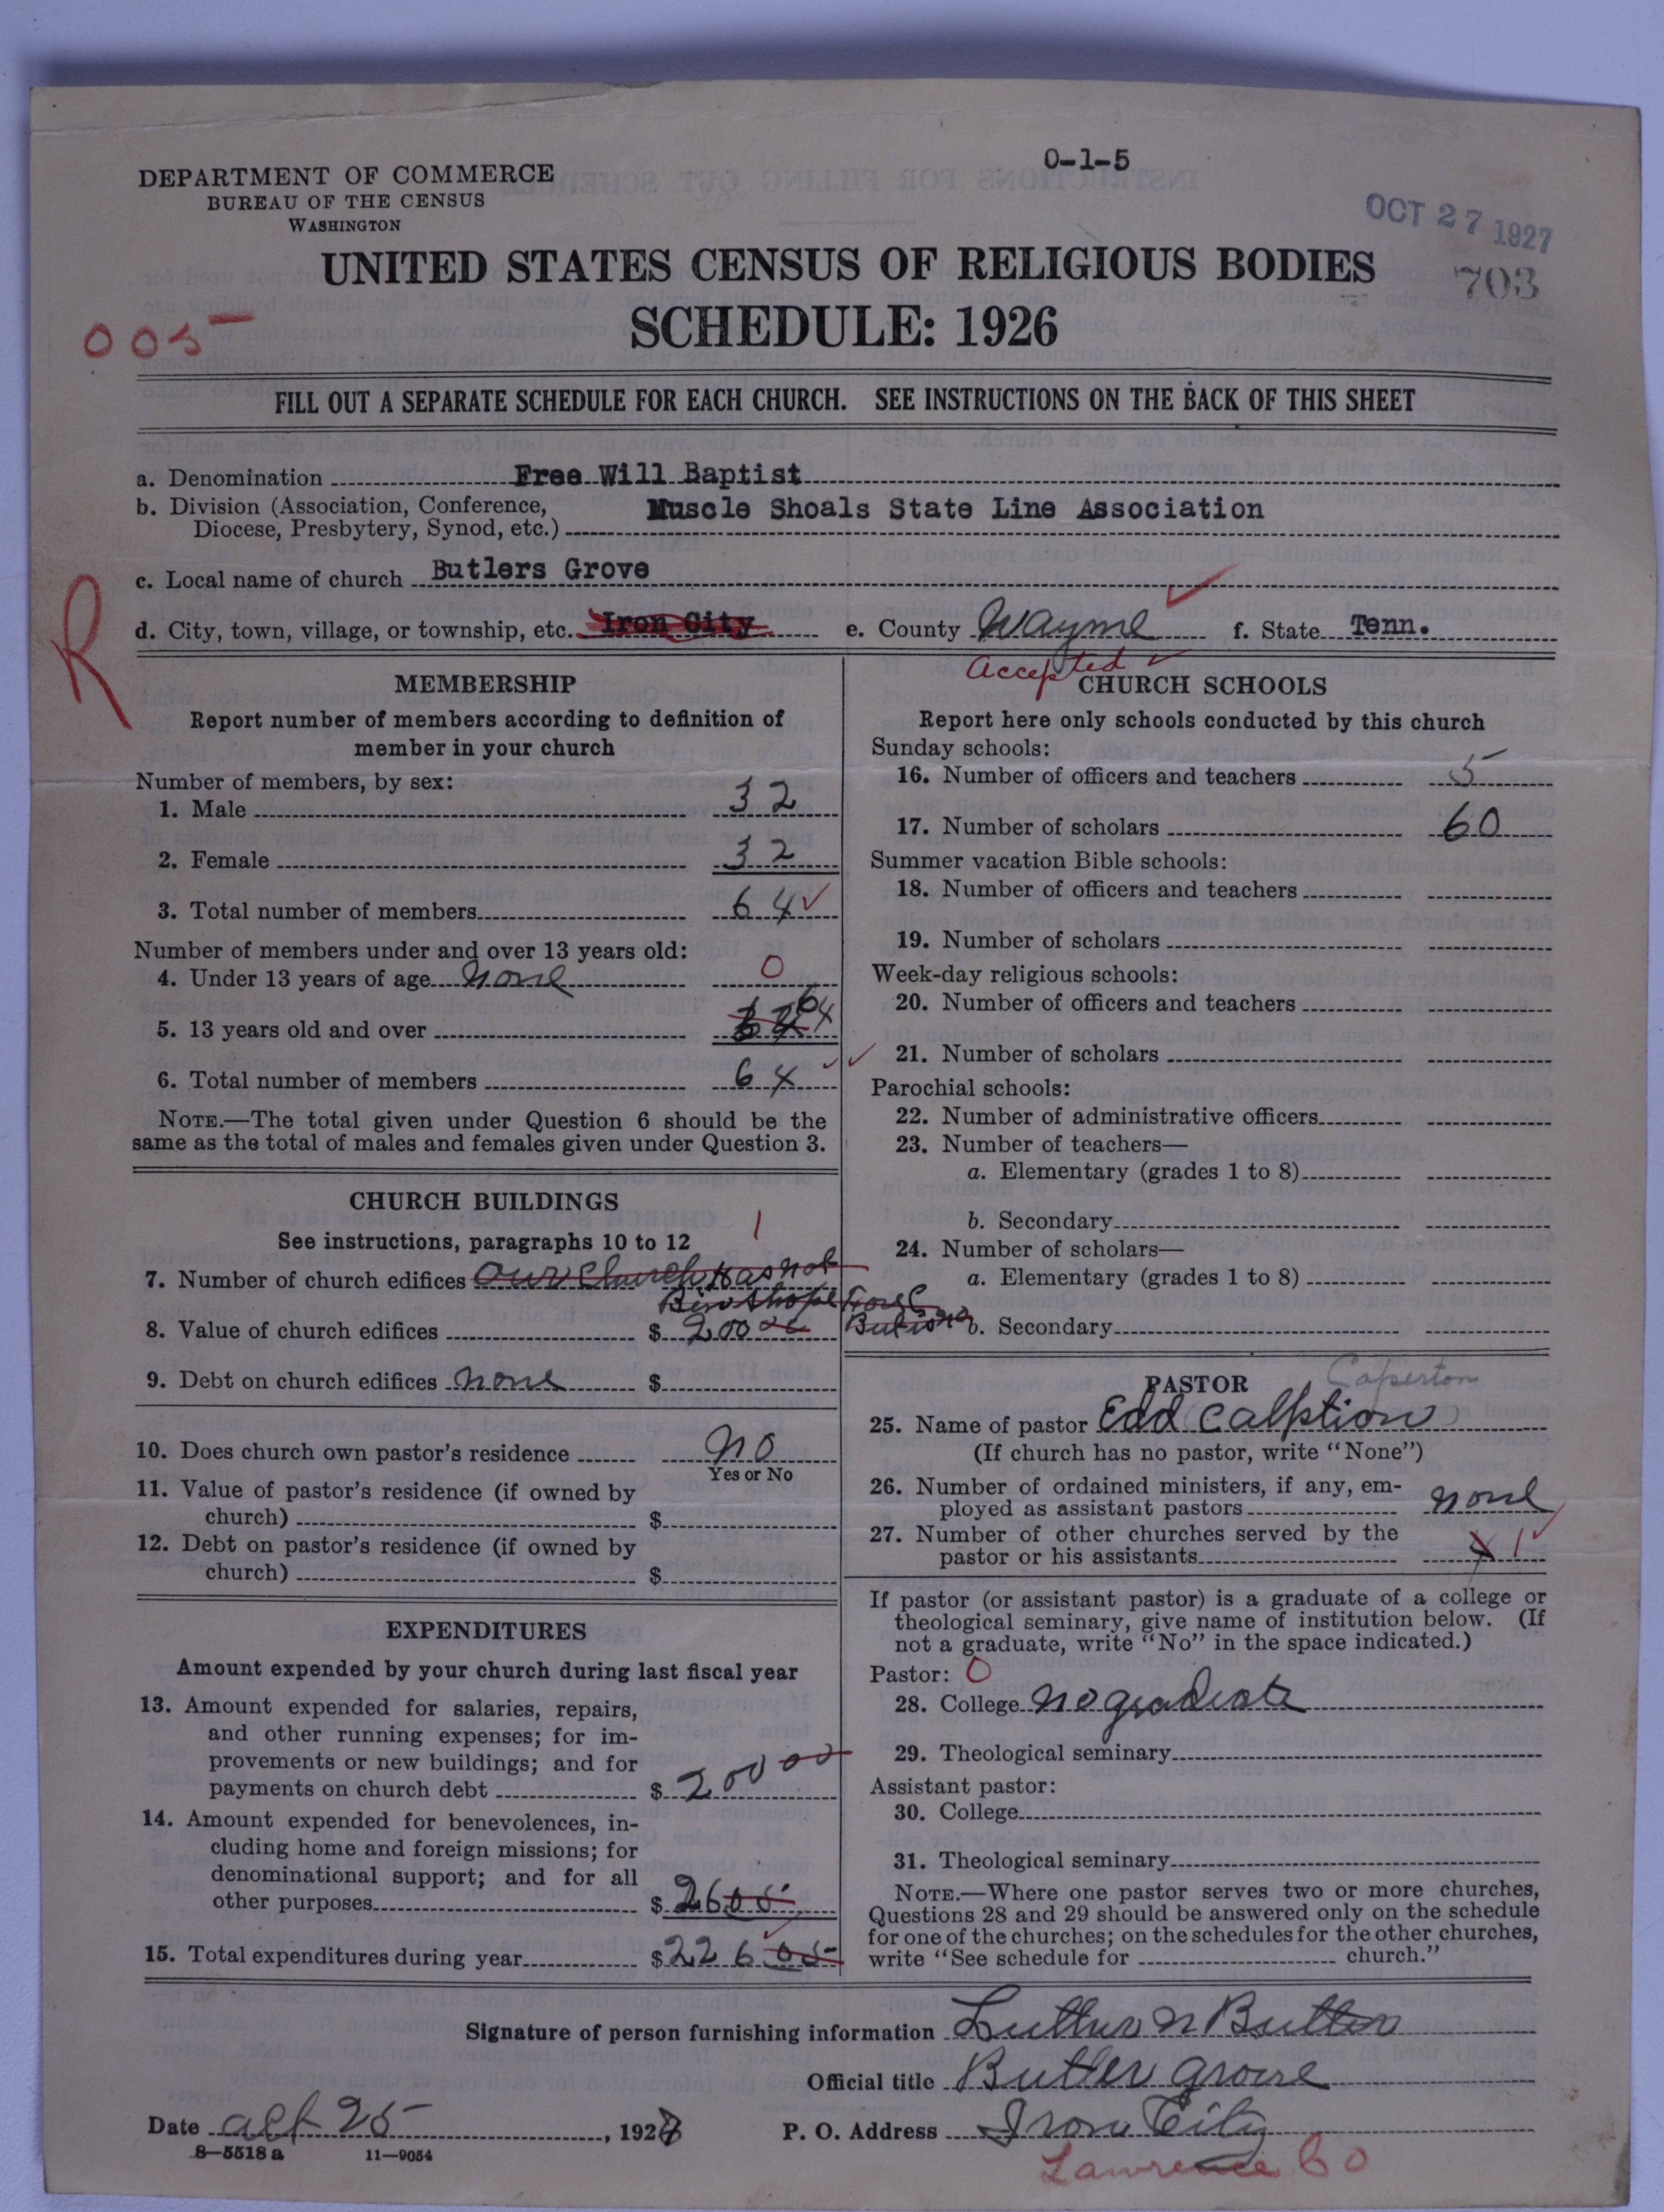 0-1-5
DEPARTMENT OF COMMERCE
BUREAU OF THE CENSUS
WASHINGTON
OCT 27 1927
703
UNITED STATES CENSUS OF RELIGIOUS BODIES
SCHEDULE: 1926
005
FILL OUT A SEPARATE SCHEDULE FOR EACH CHURCH. SEE INSTRUCTIONS ON THE BACK OF THIS SHEET
a. Denomination Free Will Baptist
b. Division (Association, Conference, Muscle Shoals State Line Association
Diocese, Presbytery, Synod, etc.)
c. Local name of church Butlers Grove
R
d. City, town, village, or township, etc. Iron City e. County Wayne f. State Tenn.
Accepted
MEMBERSHIP
Report number of members according to definition of
member in your church
Number of members, by sex:
1. Male 32
2. Female 32
3. Total number of members 64
Number of members under and over 13 years old:
4. Under 13 years of age none 0
5. 13 years old and over 64
6. Total number of members 64
NOTE.—The total given under Question 6 should be the
same as the total of males and females given under Question 3.
CHURCH BUILDINGS
See instructions, paragraphs 10 to 12
1
7. Number of church edifices Our Church Has not
8. Value of church edifices $ 200 00
9. Debt on church edifices none $
10. Does church own pastor's residence no
Yes or No
11. Value of pastor's residence (if owned by
church) $
12. Debt on pastor's residence (if owned by
church) $
EXPENDITURES
Amount expended by your church during last fiscal year
13. Amount expended for salaries, repairs,
and other running expenses; for im-
provements or new buildings; and for
payments on church debt $ 200 00
14. Amount expended for benevolences, in-
cluding home and foreign missions; for
denominational support; and for all
other purposes $ 26 05
15. Total expenditures during year $ 226 05
CHURCH SCHOOLS
Report here only schools conducted by this church
Sunday schools:
16. Number of officers and teachers 5
17. Number of scholars 60
Summer vacation Bible schools:
18. Number of officers and teachers
19. Number of scholars
Week-day religious schools:
20. Number of officers and teachers
21. Number of scholars
Parochial schools:
22. Number of administrative officers
23. Number of teachers—
a. Elementary (grades 1 to 8)
b. Secondary
24. Number of scholars—
a. Elementary (grades 1 to 8)
b. Secondary
PASTOR
Caperton
25. Name of pastor Edd Calption
(If church has no pastor, write "None")
26. Number of ordained ministers, if any, em-
ployed as assistant pastors none
27. Number of other churches served by the
pastor or his assistants 1
If pastor (or assistant pastor) is a graduate of a college or
theological seminary, give name of institution below. (If
not a graduate, write "No" in the space indicated.)
Pastor: 0
28. College no graduate
29. Theological seminary
Assistant pastor:
30. College
31. Theological seminary
NOTE.—Where one pastor serves two or more churches,
Questions 28 and 29 should be answered only on the schedule
for one of the churches; on the schedules for the other churches,
write "See schedule for church."
Signature of person furnishing information Luther n Butler
Official title Butler grove
Date 25, 1927 P. O. Address Iron City
8—5518 a 11—9054
Lawrence Co